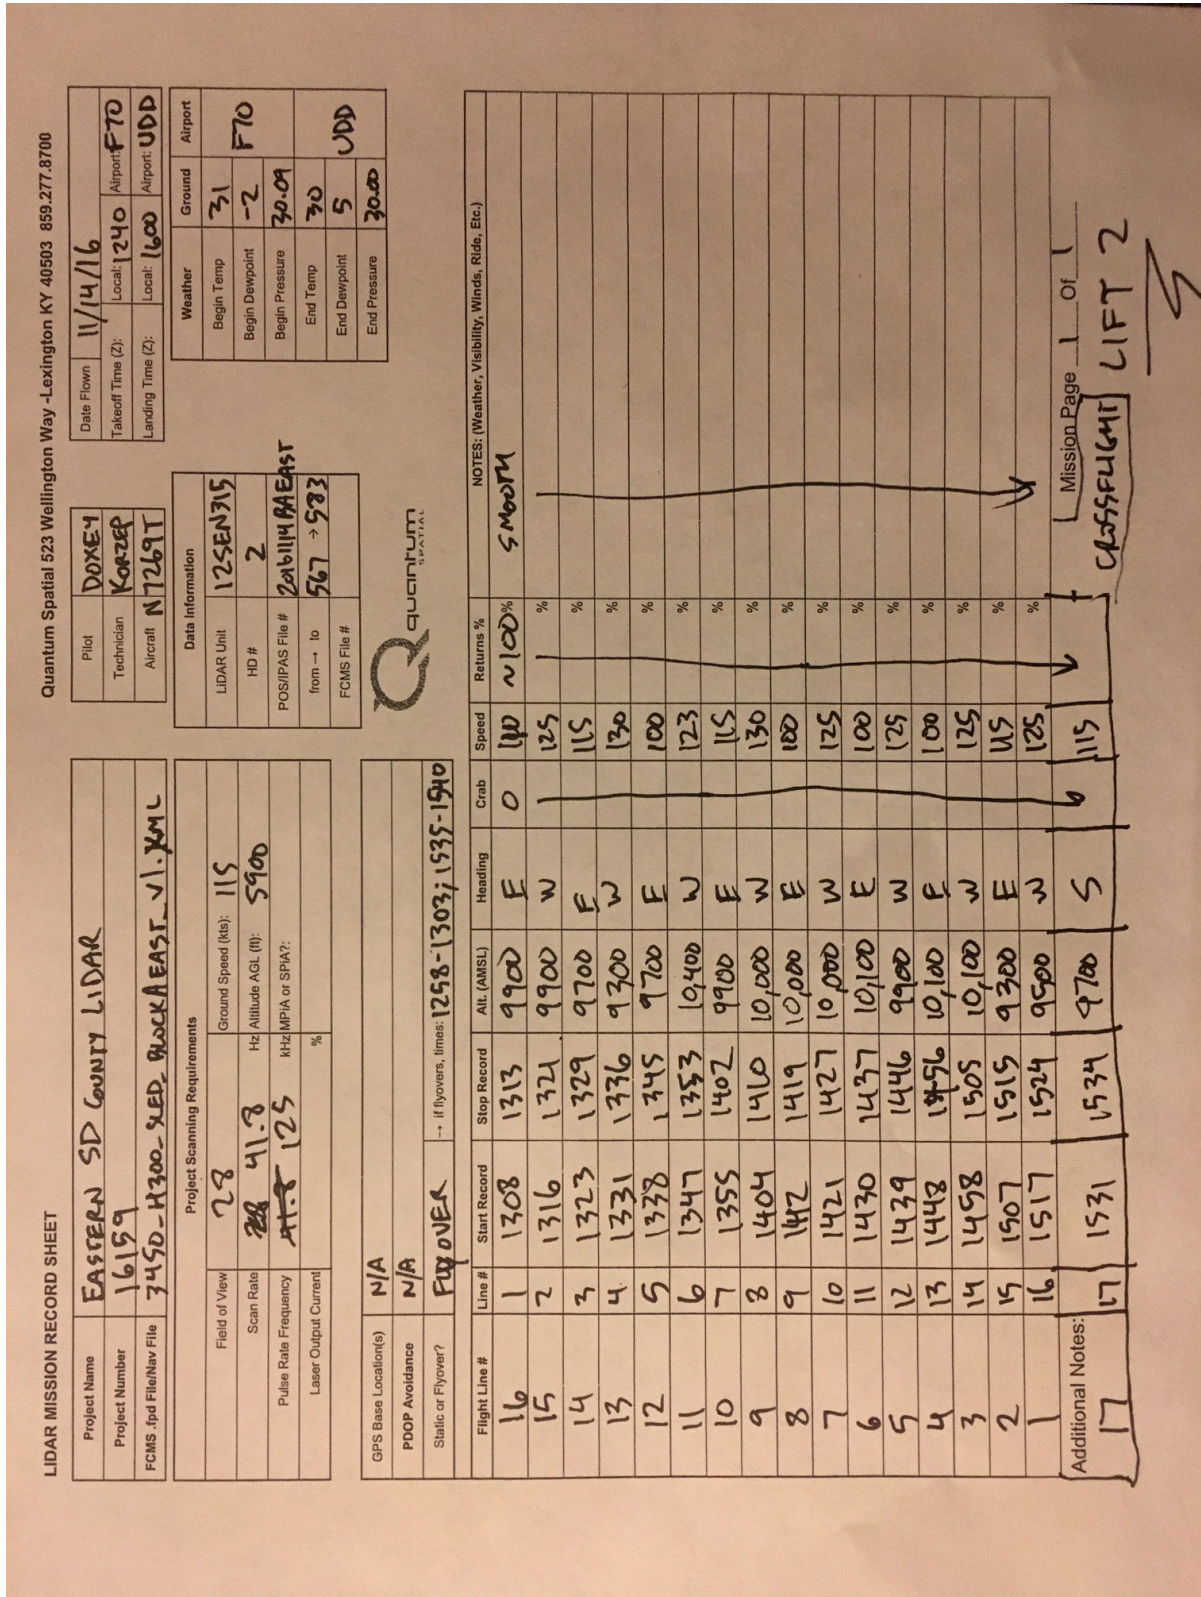 LIDAR MISSION RECORD SHEET
Quantum Spatial 523 Wellington Way -Lexington KY 40503 859.277.8700
Project Name EASTERN SD COUNTY LIDAR
Project Number 16159
FCMS .fpd File/Nav File 3450-H300_SLED_BLOCKAEAST_V1.XML
Pilot DOXEY
Technician KORZEP
Aircraft N7269T
Date Flown 11/14/16
Takeoff Time (Z): Local: 1240 Airport: F70
Landing Time (Z): Local: 1600 Airport: UDD
Project Scanning Requirements
Field of View 28 Ground Speed (kts): 115
Scan Rate 41.8 Hz Altitude AGL (ft): 5900
Pulse Rate Frequency 41.8 125 kHz MPiA or SPiA?:
Laser Output Current %
Data Information
LiDAR Unit 12SEN315
HD # 2
POS/IPAS File # 20161114BAEAST
from → to 567 → 583
FCMS File #
Weather Ground Airport
Begin Temp 31 F70
Begin Dewpoint -2
Begin Pressure 30.09
End Temp 30 UDD
End Dewpoint 5
End Pressure 30.00
GPS Base Location(s) N/A
PDOP Avoidance N/A
Static or Flyover? FLYOVER → if flyovers, times: 1258-1303; 1535-1540
quantum
SPATIAL
Flight Line # Line # Start Record Stop Record Alt. (AMSL) Heading Crab Speed Returns % NOTES: (Weather, Visibility, Winds, Ride, Etc.)
16 1 1308 1313 9900 E 0 110 ~100% SMOOTH
15 2 1316 1321 9900 W 125 %
14 3 1323 1329 9700 E 115 %
13 4 1331 1336 9300 W 130 %
12 5 1338 1345 9700 E 100 %
11 6 1347 1353 10,400 W 123 %
10 7 1355 1402 9900 E 115 %
9 8 1404 1410 10,000 W 130 %
8 9 1412 1419 10,000 E 100 %
7 10 1421 1427 10,000 W 125 %
6 11 1430 1437 10,100 E 100 %
5 12 1439 1446 9900 W 125 %
4 13 1448 1456 10,100 E 100 %
3 14 1458 1505 10,100 W 125 %
2 15 1507 1515 9300 E 115 %
1 16 1517 1524 9500 W 125 %
Additional Notes: Mission Page 1 Of 1
17 17 1531 1534 9700 S 115 CROSSFLIGHT LIFT 2